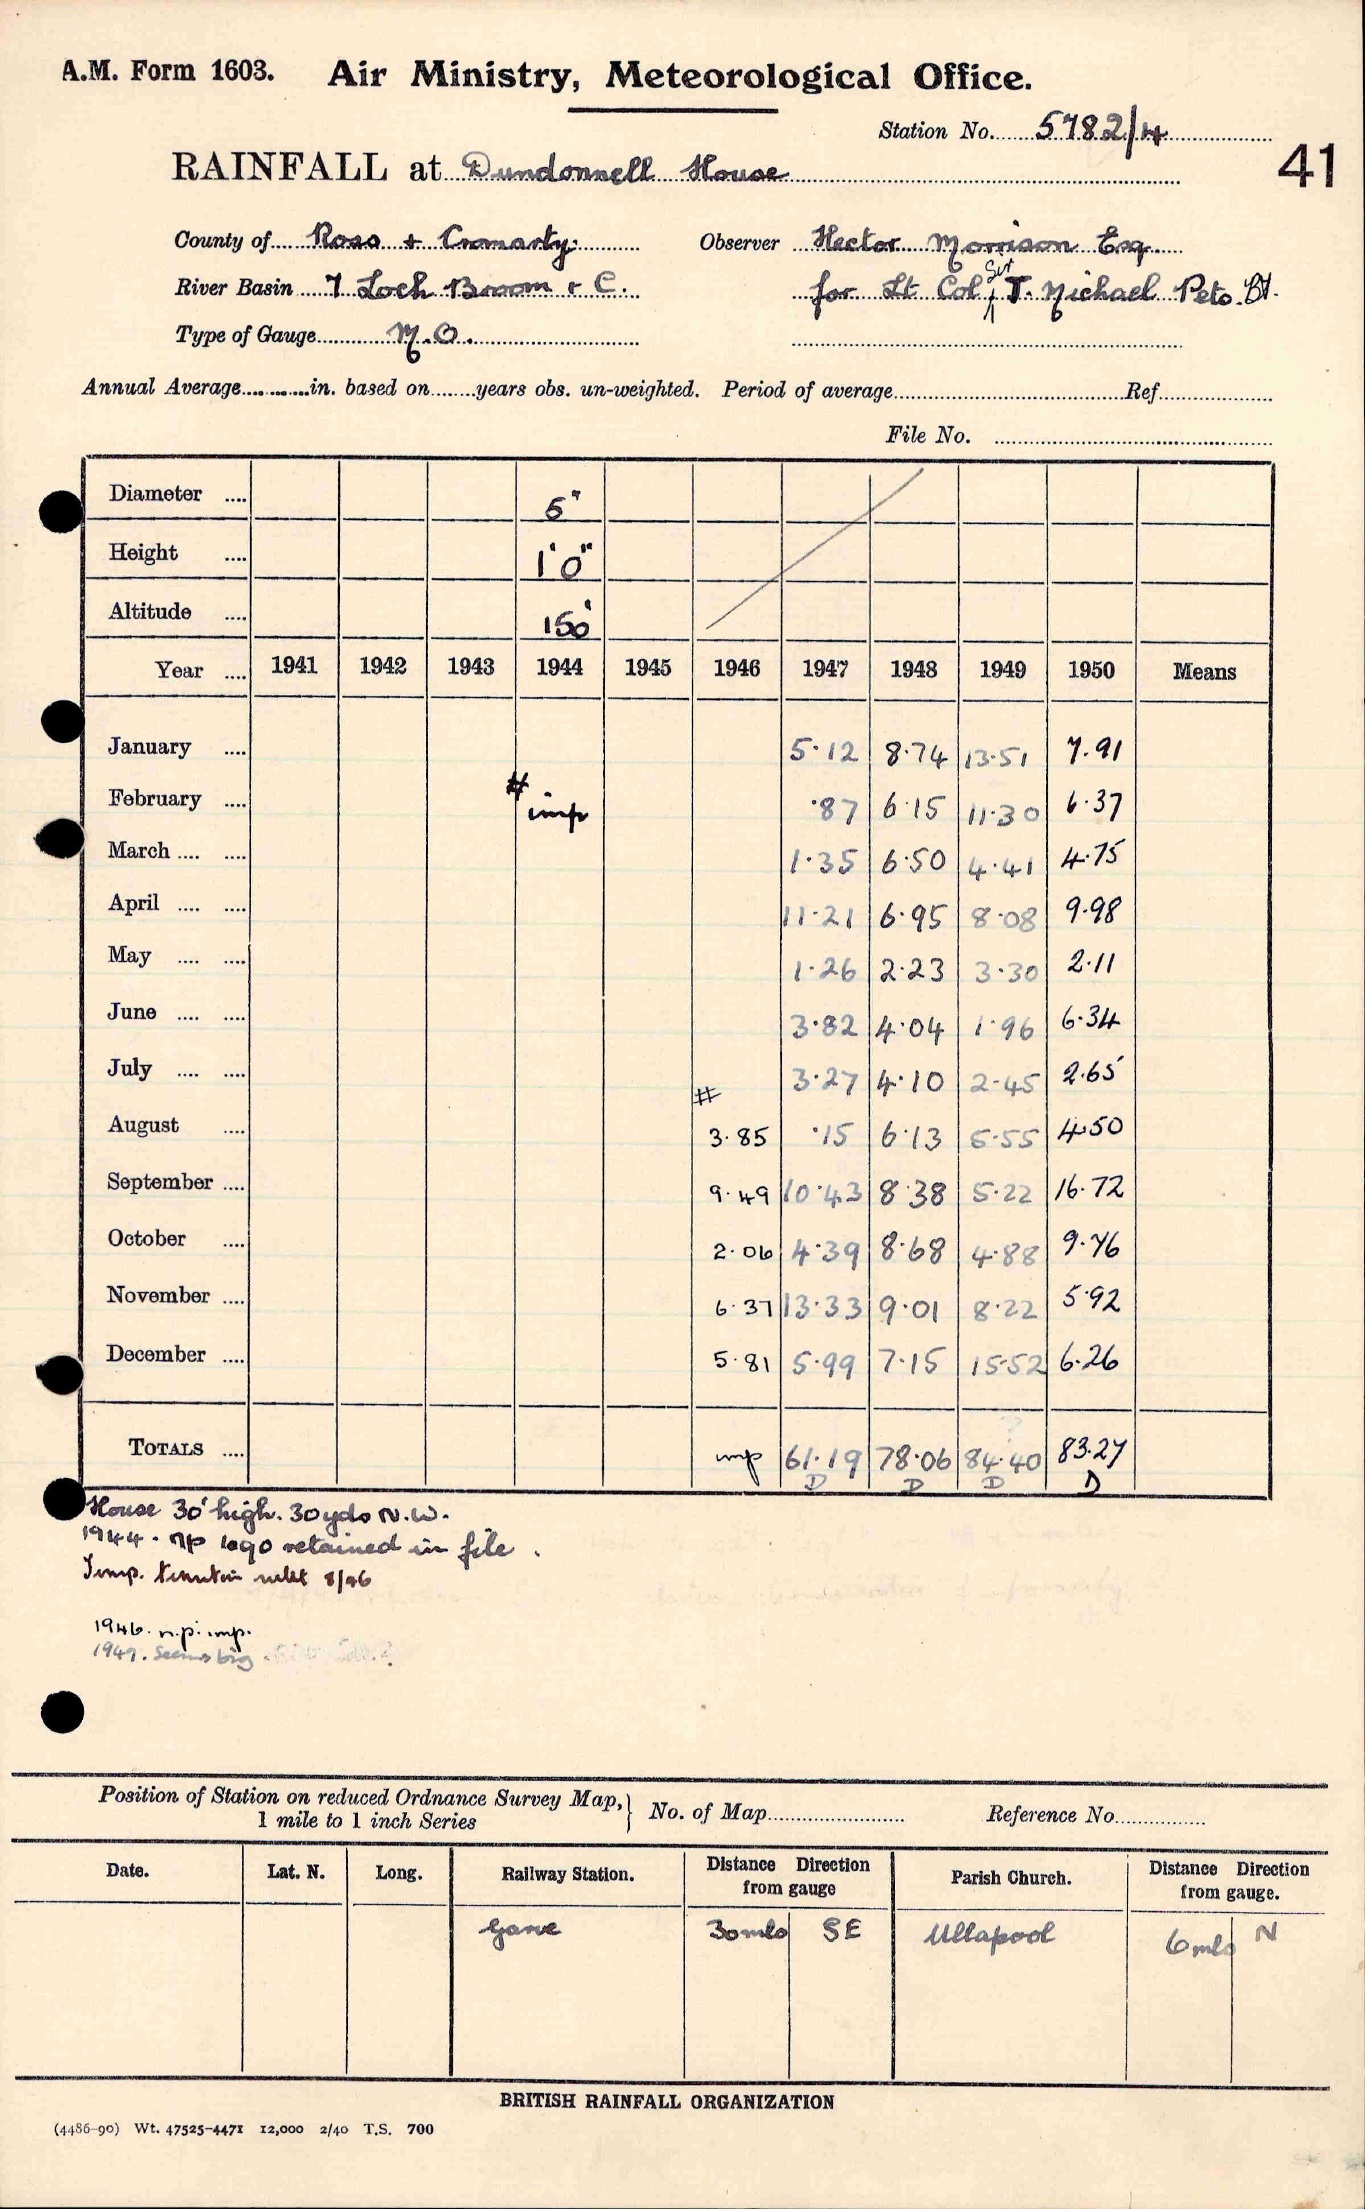 A.M. Form 1603. Air Ministry, Meteorological Office.
Station No. 5782/4
41
RAINFALL at Dundonnell House
County of Ross + Cromarty. Observer Hector Morrison Esq.
River Basin 7 Loch Broom & C. for Lt Col Sir T. Michael Peto. Bt.
Type of Gauge M.O.
Annual Average in. based on years obs. un-weighted. Period of average Ref
File No.
Diameter 5"
Height 1'0"
Altitude 150'
Year 1941 1942 1943 1944 1945 1946 1947 1948 1949 1950 Means
January 5.12 8.74 13.51 7.91
February # imp .87 6.15 11.30 6.37
March 1.35 6.50 4.41 4.75
April 11.21 6.95 8.08 9.98
May 1.26 2.23 3.30 2.11
June 3.82 4.04 1.96 6.34
July 3.27 4.10 2.45 2.65
#
August 3.85 .15 6.13 5.55 4.50
September 9.49 10.43 8.38 5.22 16.72
October 2.06 4.39 8.68 4.88 9.76
November 6.37 13.33 9.01 8.22 5.92
December 5.81 5.99 7.15 15.52 6.26
?
TOTALS imp 61.19 78.06 84.40 83.27
D D D D
House 30' high. 30yds N.W.
1944. np 1090 retained in file.
Temp. 8/46
1946. n.p. imp.
1949. Seems big.
Position of Station on reduced Ordnance Survey Map, } No. of Map Reference No.
1 mile to 1 inch Series
Date. Lat. N. Long. Railway Station. Distance Direction from gauge Parish Church. Distance Direction from gauge.
Garve 30 mls SE Ullapool 6 mls N
BRITISH RAINFALL ORGANIZATION
(4486-90) Wt. 47525-4471 12,000 2/40 T.S. 700